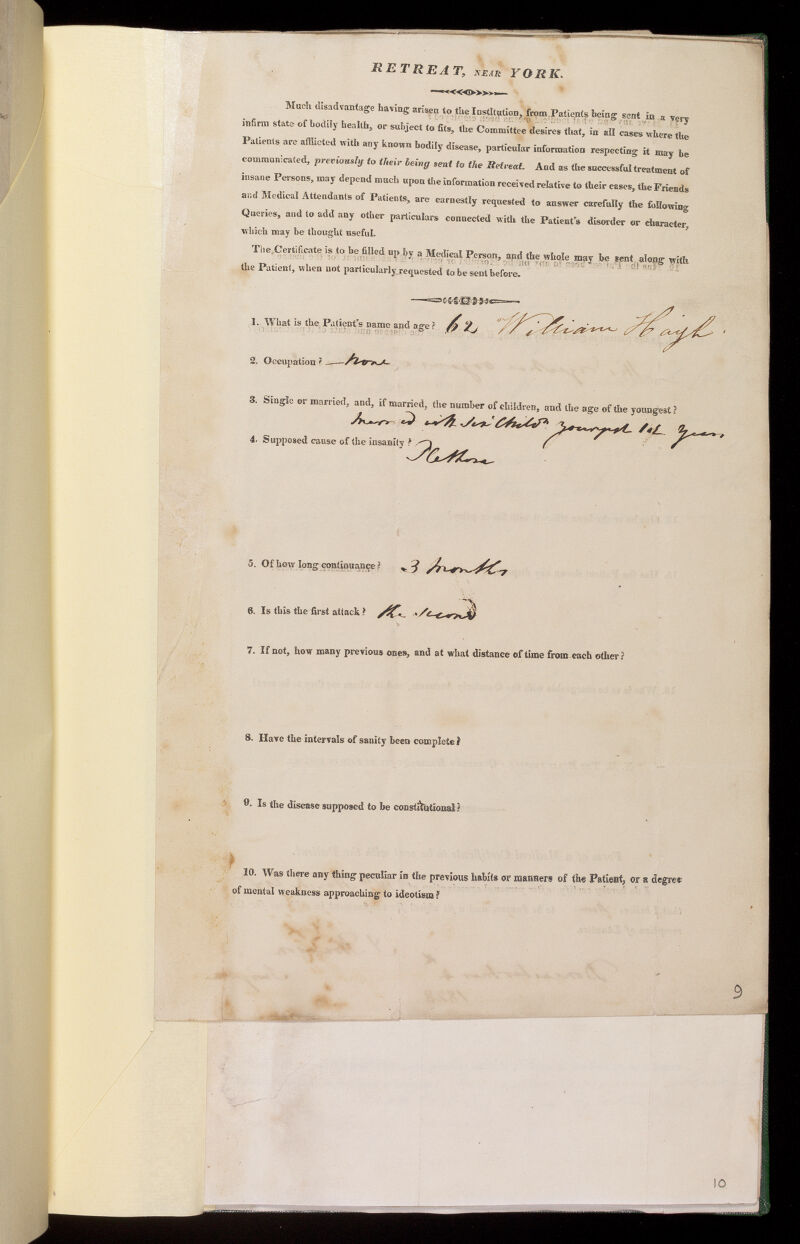 RETREAT, NEAR YORK.
Much disadvantage having arisen to the Institution, from Patients being sent in a very
infirm state of bodily health, or subject to fits, the Committee desires that, in all cases where the
Patients are afflicted with any known bodily disease, particular information respecting it may be
communicated, previously to their being sent to the Retreat. And as the successful treatment of
insane Persons, may depend much upon the information received relative to their cases, the Friends
and Medical Attendants of Patients, are earnestly requested to answer carefully the following
Queries, and to add any other particulars connected with the Patient's disorder or character,
which may be thought useful.
The Certificate is to be filled up by a Medical Person, and the whole may be sent along with
the Patient, when not particularly requested to be sent before.
1. What is the Patient's name and age? 62 William Haigh.
2. Occupation? — None
3. Single or married, and, if married, the number of children, and the age of the youngest?
Married with Six Childn youngest 1st Years
4. Supposed cause of the insanity?
Plethora
5. Of how long continuance? 3 Months
6. Is this the first attack? the second
7. If not, how many previous ones, and at what distance of time from each other?
8. Have the intervals of sanity been complete?
9. Is the disease supposed to be constitutional?
10. Was there any thing peculiar in the previous habits or manners of the Patient, or a degree
of mental weakness approaching to ideotism?
9
10